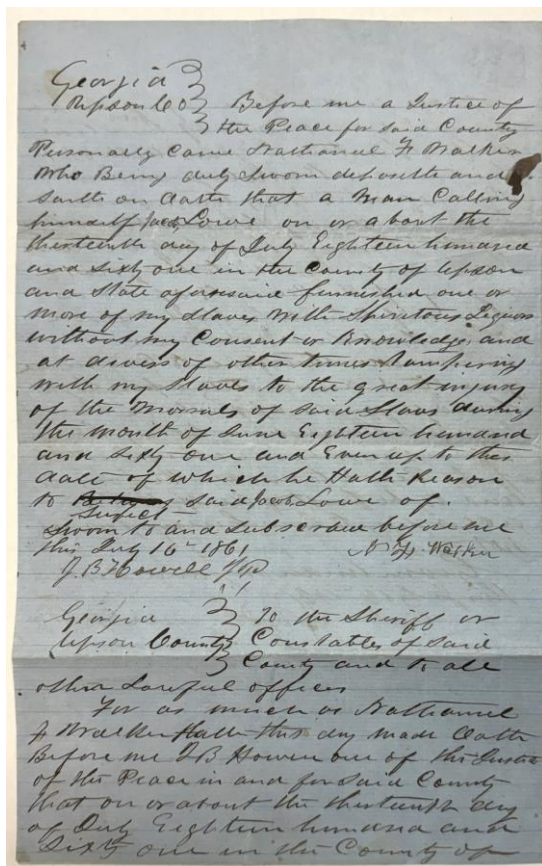 Georgia
Upson Co Before me a Justice of
the Peace for said County
Personally Came Nathaniel F Walker
Who Being duly Sworn deposeth and
saith on Oath that a Man Calling
himself Jacob Lowe on or about the
thirteenth day of July Eighteen hundred
and Sixty one in the County of Upson
and State aforesaid furnished one or
more of my slaves with Spiritous Liquors
without my Consent or Knowledge and
at divers of other times tampering
with my Slaves to the great injury
of the Morrals of said Slaves during
the month of June Eighteen hundred
and Sixty one and Even up to this
date of which he Hath Reason
to suspect said Jacob Lowe of.
Sworn to and Subscribed before me
this July 16 1861 N F Walker
J. B Howell J P
Georgia To the Sheriff or
Upson County Constables of Said
County and to all
other Lawful officers
For as much as Nathaniel
F Walker Hath this day made Oath
Before me J B Howell one of the Justice
of the Peace in and for Said County
that on or about the thirteenth day
of July Eighteen hundred and
Sixty one in the County of